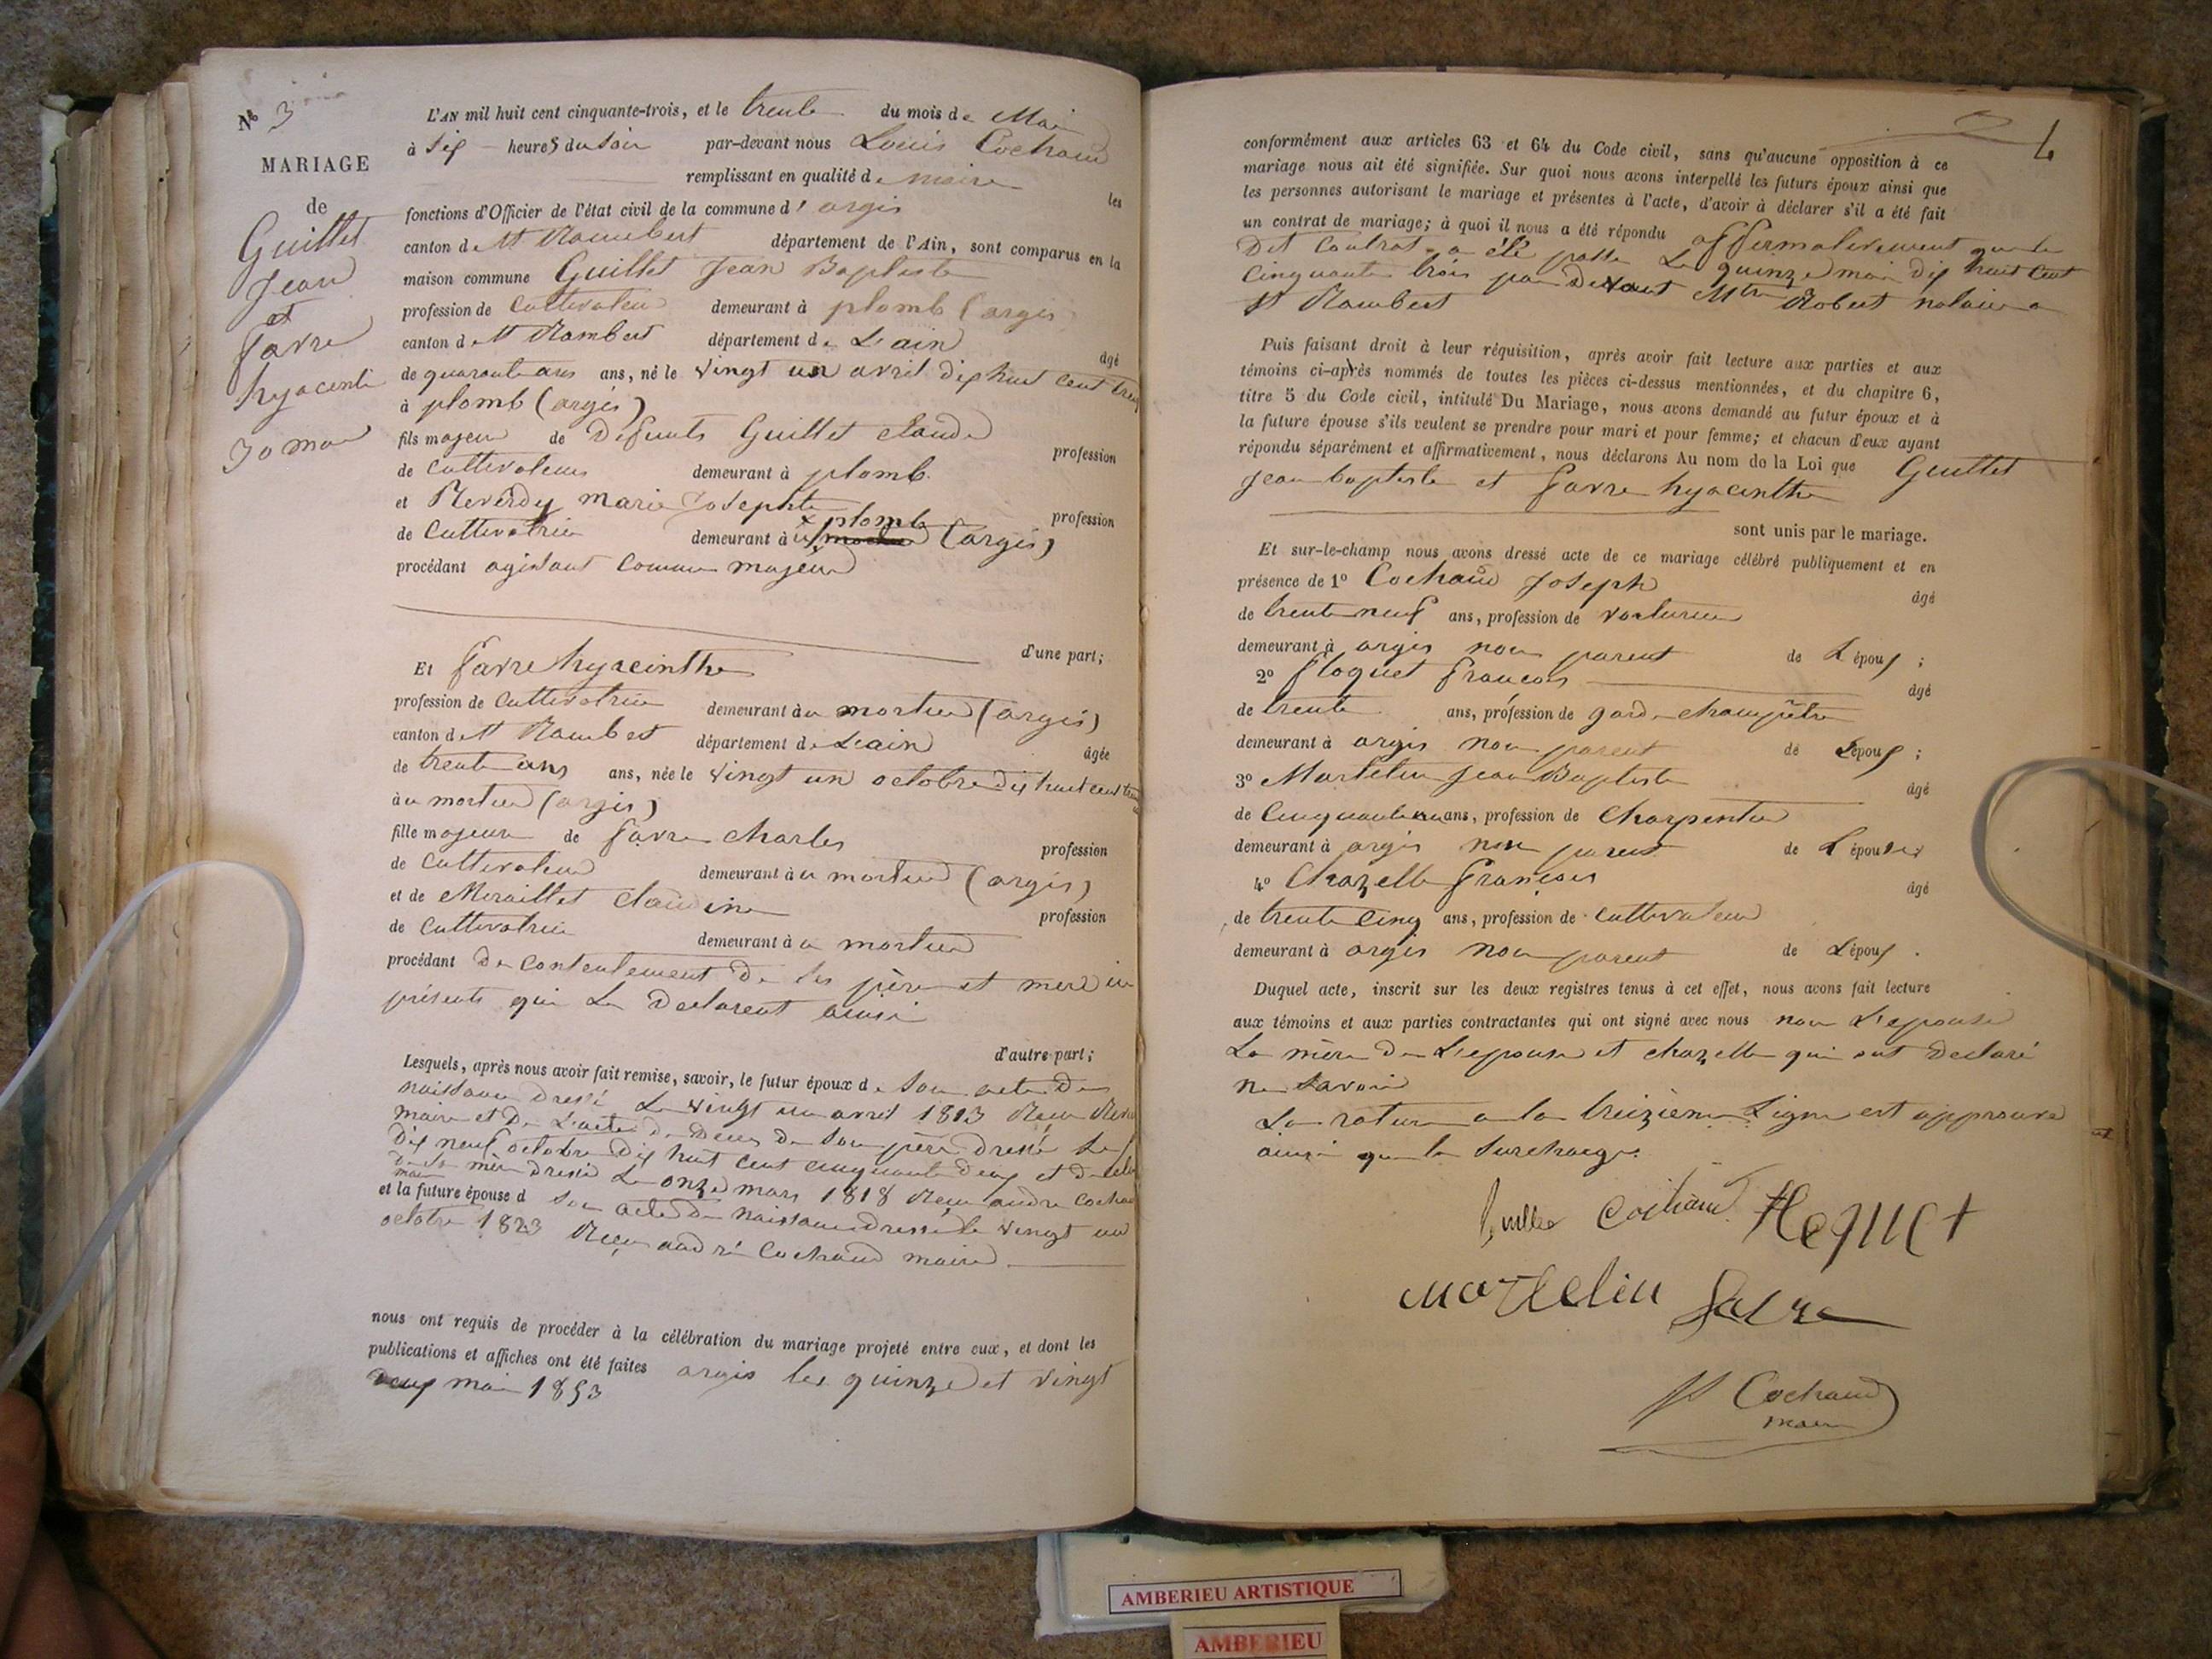 No 3
MARIAGE
de
Guillet
Jean
et
favre
hyacinthe
30 mai
L'AN mil huit cent cinquante-trois, et le trente du mois de Mai
à Six heures du Soir par-devant nous Louis Cochaud
remplissant en qualité de maire les
fonctions d'Officier de l'état civil de la commune d'argis
canton de St Rambert département de l'Ain, sont comparus en la
maison commune Guillet Jean Baptiste
profession de cultivateur demeurant à plomb (argis)
canton de St Rambert département de L'ain âgé
de quarante ans ans, né le vingt un avril dix huit cent treize
à plomb (argis)
fils majeur de defunts Guillet claude profession
de cultivateur demeurant à plomb.
et Reverdy marie Josephte profession
de cultivatrice demeurant à plomb (argis)
procédant agissant comme majeur
d'une part;
Et favre hyacinthe
profession de cultivatrice demeurant au mortier (argis)
canton de St Rambert département de L'ain âgée
de trente ans ans, née le vingt un octobre dix huit cent
au mortier (argis)
fille majeure de favre charles profession
de cultivateur demeurant au mortier (argis)
et de Miraillet claudine profession
de cultivatrice demeurant au mortier
procédant du consentement de ses père et mère ici
présents qui le declarent ainsi
d'autre part;
Lesquels, après nous avoir fait remise, savoir, le futur époux de son acte de
naissance dressé le vingt un avril 1813 Reçu
maire et de L'acte de deces de son père dressé le
dix neuf octobre dix huit cent cinquante deux et de celui
de sa mère dressé le onze mars 1818 Reçu andré Cochaud
maire
et la future épouse d son acte de naissance dressé le vingt un
octobre 1823 Reçu andré Cochaud maire
nous ont requis de procéder à la célébration du mariage projeté entre eux, et dont les
publications et affiches ont été faites argis les quinze et vingt
deux mai 1853
4
conformément aux articles 63 et 64 du Code civil, sans qu'aucune opposition à ce
mariage nous ait été signifiée. Sur quoi nous avons interpellé les futurs époux ainsi que
les personnes autorisant le mariage et présentes à l'acte, d'avoir à déclarer s'il a été fait
un contrat de mariage; à quoi il nous a été répondu affirmativement que le
dit Contrat a été passé le quinze mai dix huit cent
cinquante trois par devant Mtre Robert notaire a
St Rambert
Puis faisant droit à leur réquisition, après avoir fait lecture aux parties et aux
témoins ci-après nommés de toutes les pièces ci-dessus mentionnées, et du chapitre 6,
titre 5 du Code civil, intitulé Du Mariage, nous avons demandé au futur époux et à
la future épouse s'ils veulent se prendre pour mari et pour femme; et chacun d'eux ayant
répondu séparément et affirmativement, nous déclarons Au nom de la Loi que Guillet
Jean baptiste et favre hyacinthe
sont unis par le mariage.
Et sur-le-champ nous avons dressé acte de ce mariage célébré publiquement et en
présence de 1o Cochaud Joseph âgé
de trente neuf ans, profession de voiturier
demeurant à argis non parent de L'époux;
2o floquet françois âgé
de trente ans, profession de garde champêtre
demeurant à argis non parent de L'époux;
3o Martelin Jean Baptiste âgé
de cinquante un ans, profession de charpentier
demeurant à argis non parent de L'épouse
4o Chazelle françois âgé
de trente cinq ans, profession de cultivateur
demeurant à argis non parent de L'époux.
Duquel acte, inscrit sur les deux registres tenus à cet effet, nous avons fait lecture
aux témoins et aux parties contractantes qui ont signé avec nous non L'epouse
La mère de L'epouse et chazelle qui ont declaré
ne savoir
La rature a la treizieme Ligne est approuvé
ainsi que la surcharge.
Cochaud
Martelin favre
Cochaud
maire
AMBERIEU ARTISTIQUE
AMBERIEU